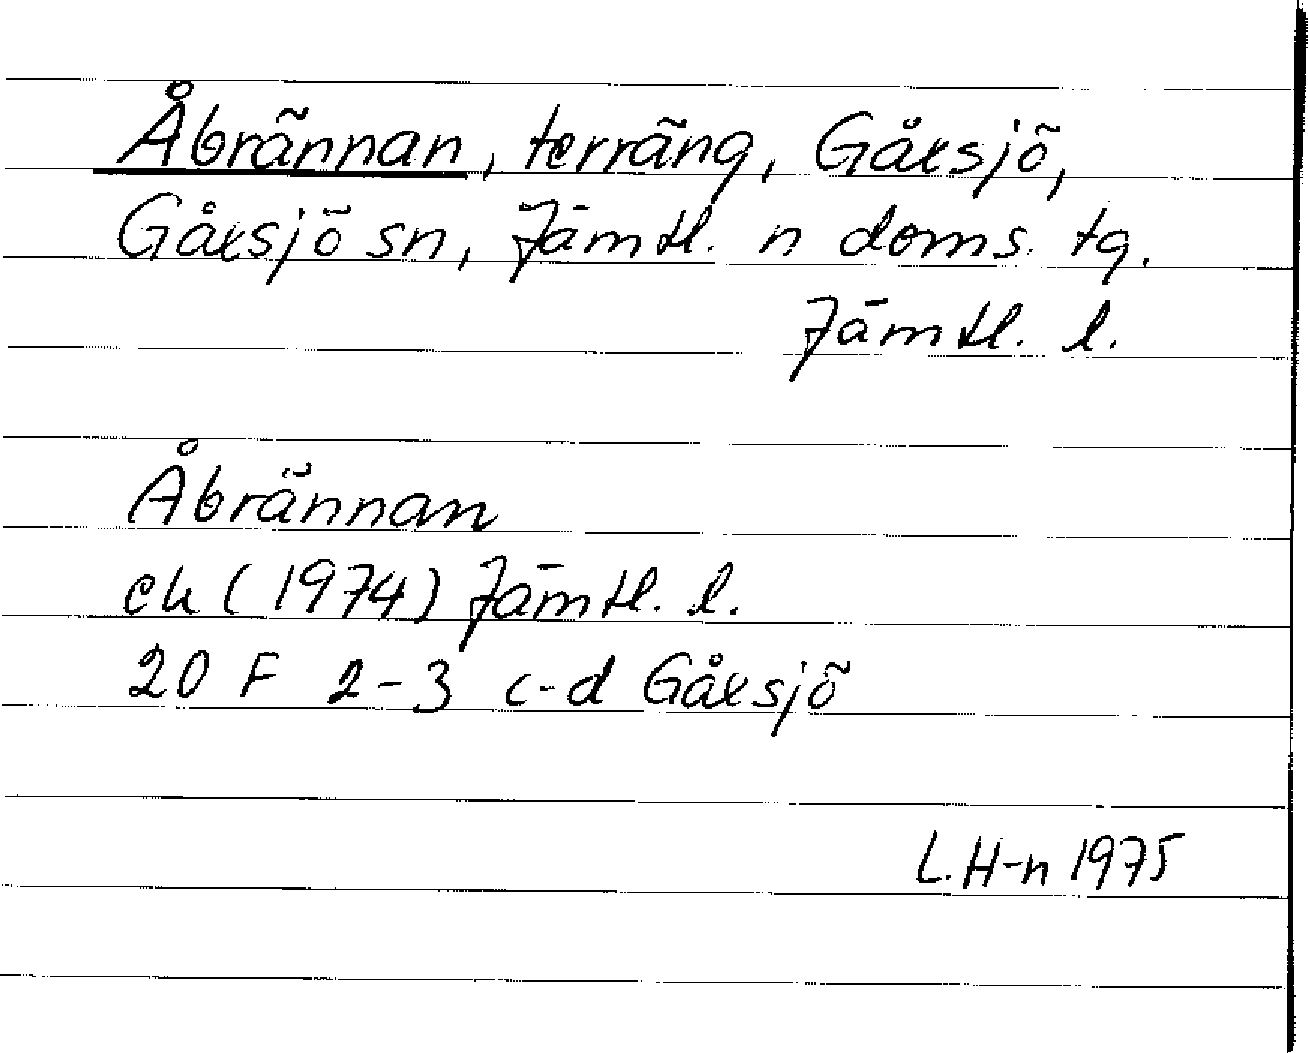 Åbrännan, terräng, Gåxsjö,
Gåxsjö sn, Jämtl. n doms. tg.
Jämtl. l.
Åbrännan
ek (1974) Jämtl. l.
20 F 2-3 c-d Gåxsjö
L.H-n 1975